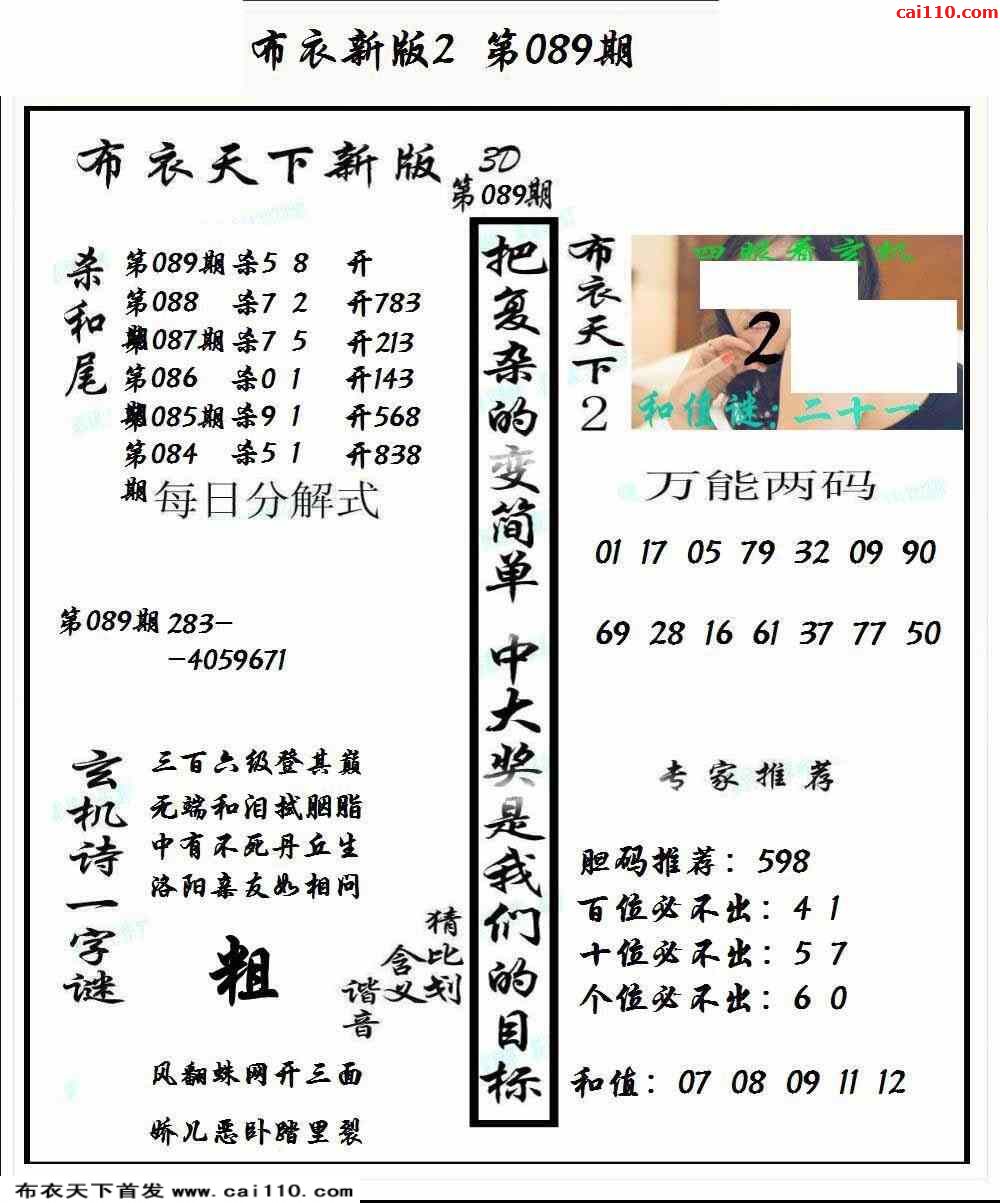 cai110.com
布衣新版2 第089期
布衣天下新版
3D
第089期
杀和尾
第089期杀5 8 开
第088期 杀7 2 开783
第087期杀7 5 开213
第086期 杀0 1 开143
第085期杀9 1 开568
第084期 杀5 1 开838
每日分解式
第089期 283-
-4059671
玄机诗一字谜
三百六级登其巅
无端和泪拭胭脂
中有不死丹丘生
洛阳亲友如相问
粗
猜比划
含义
谐音
风翻蛛网开三面
娇儿恶卧踏里裂
把复杂的变简单 中大奖是我们的目标
布衣天下2
四眼看玄机
2
和值谜:二十一
万能两码
01 17 05 79 32 09 90
69 28 16 61 37 77 50
专家推荐
胆码推荐：598
百位必不出：4 1
十位必不出：5 7
个位必不出：6 0
和值：07 08 09 11 12
布衣天下首发 www.cai110.com